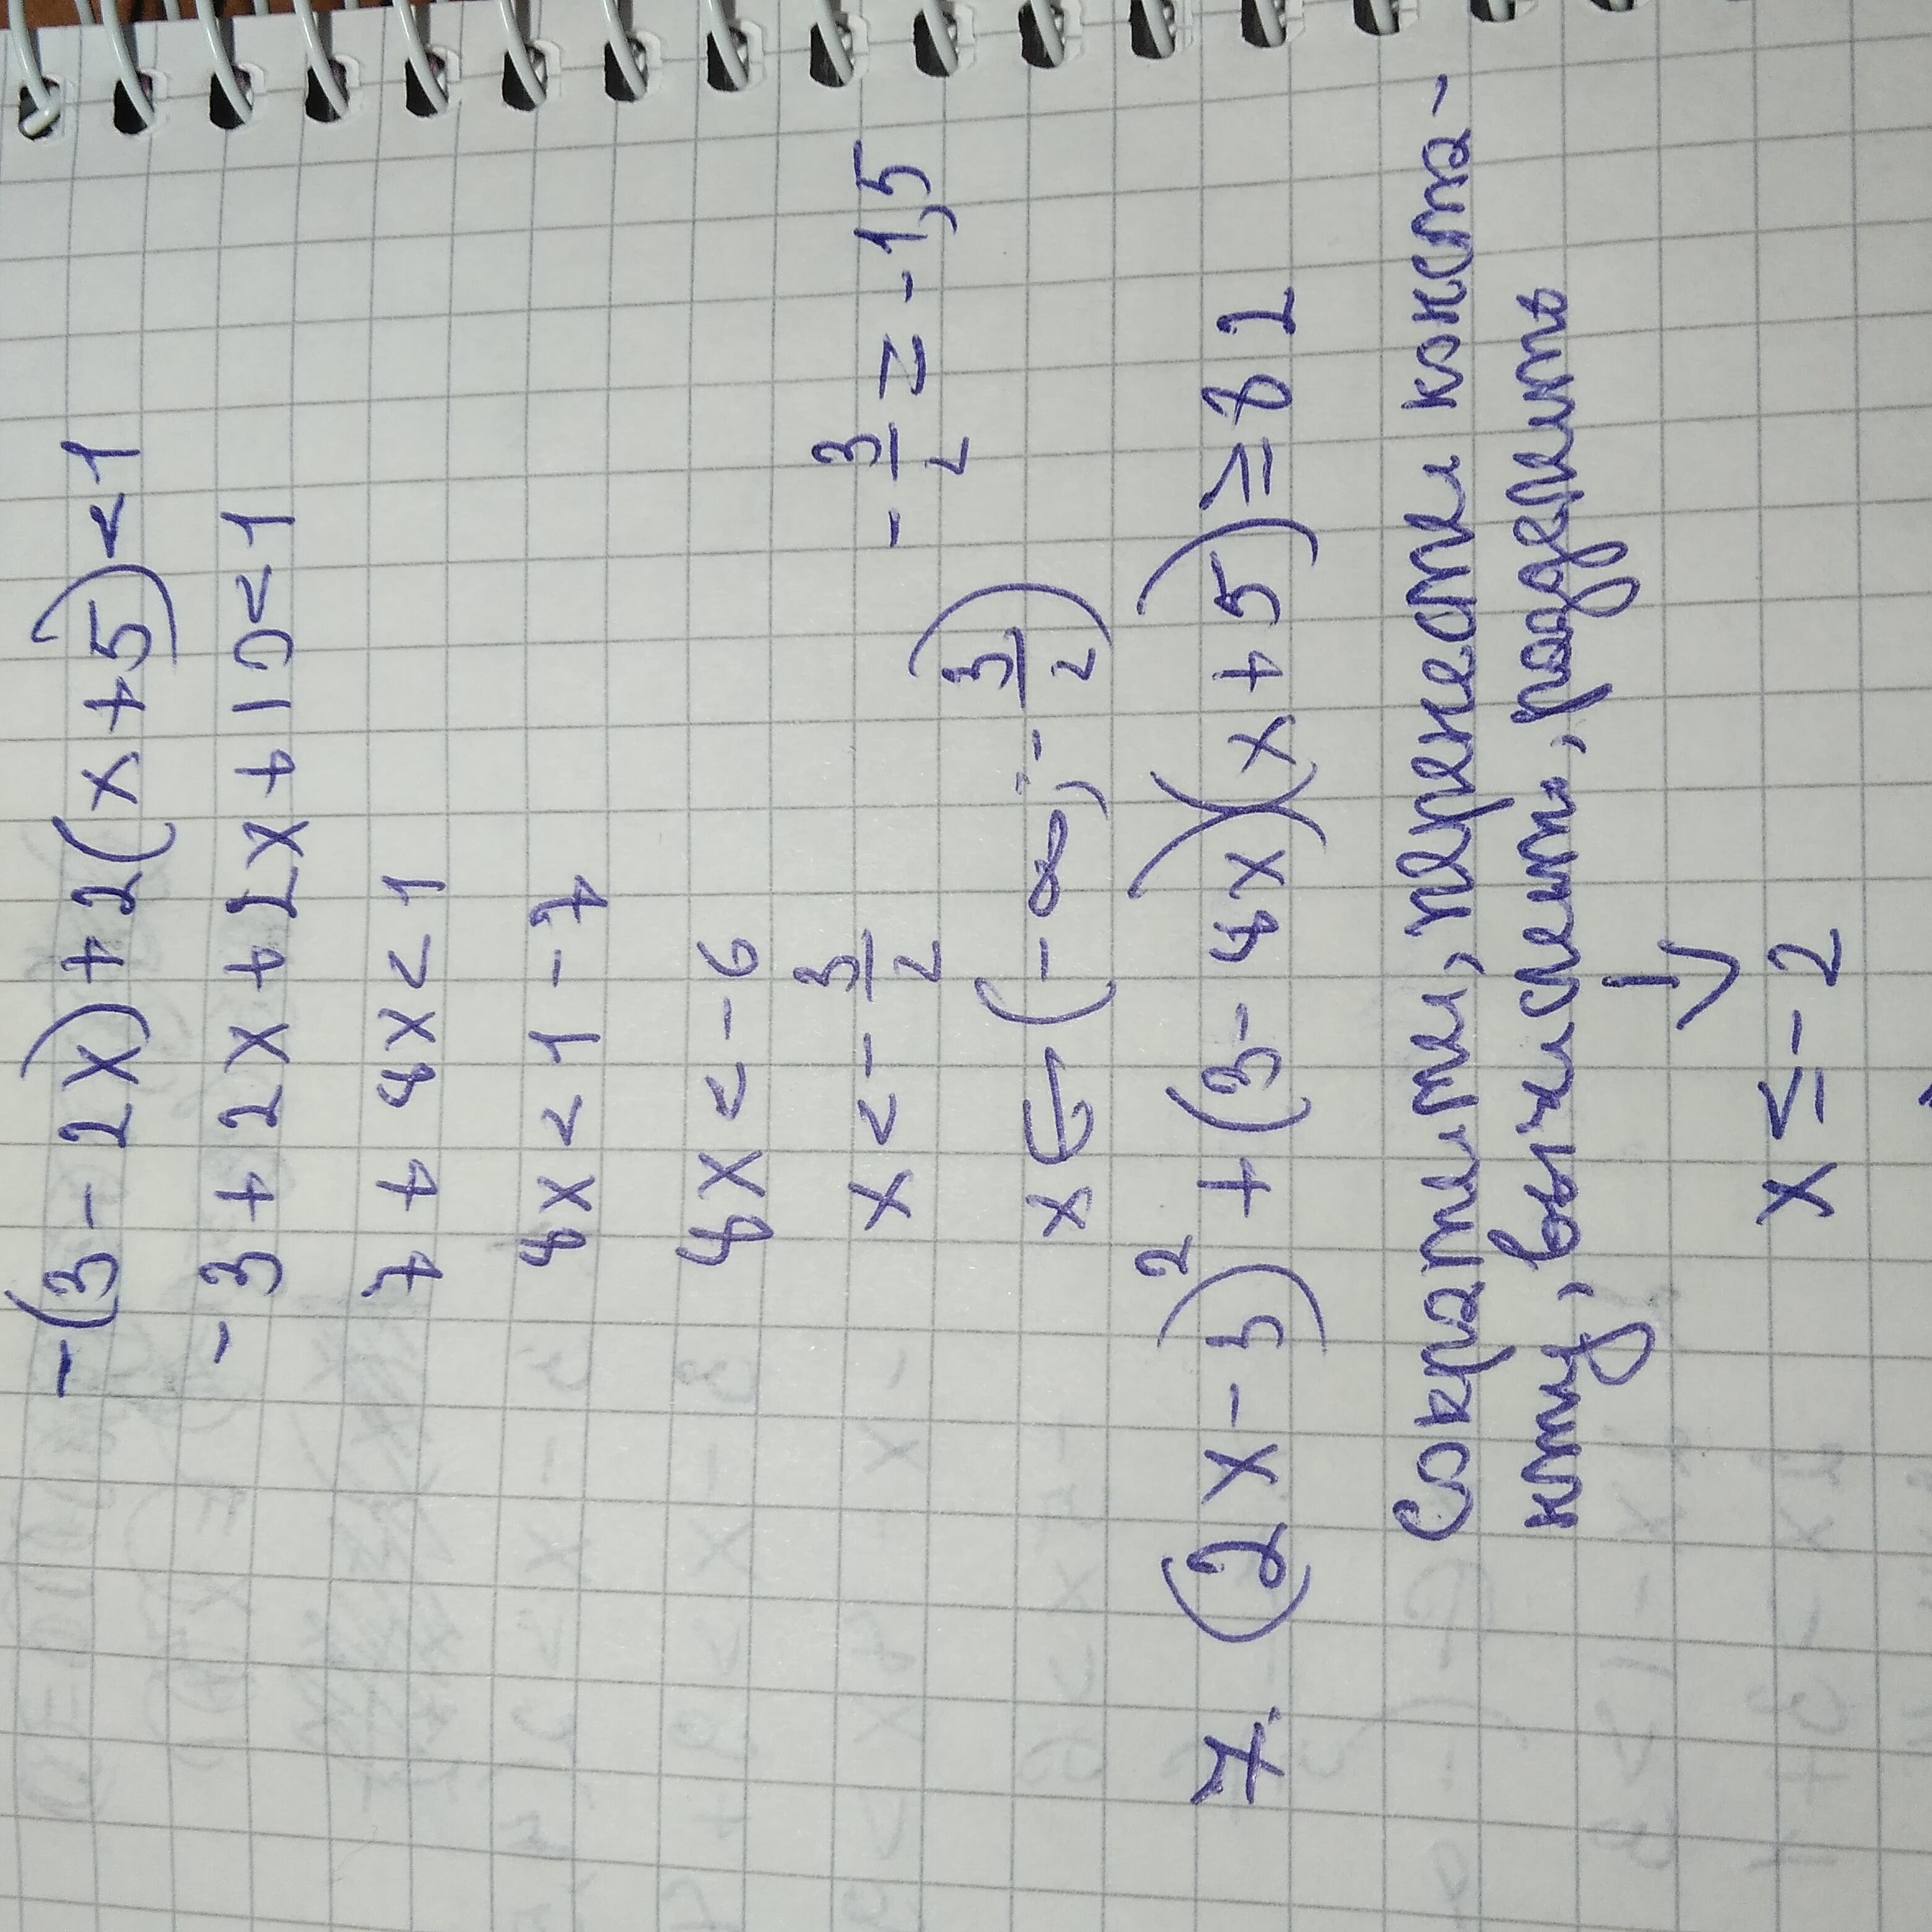 -(3-2x)+2(x+5)<1
-3+2x+2x+10<1
7+4x<1
4x<1-7
4x<-6
x<-3/2 -3/2=-1,5
x∈(-∞;-3/2)
7. (2x-5)²+(3-4x)(x+5)≥82
Сократили, перенесли конста-
нту, вычислить, разделить
↓
x≤-2